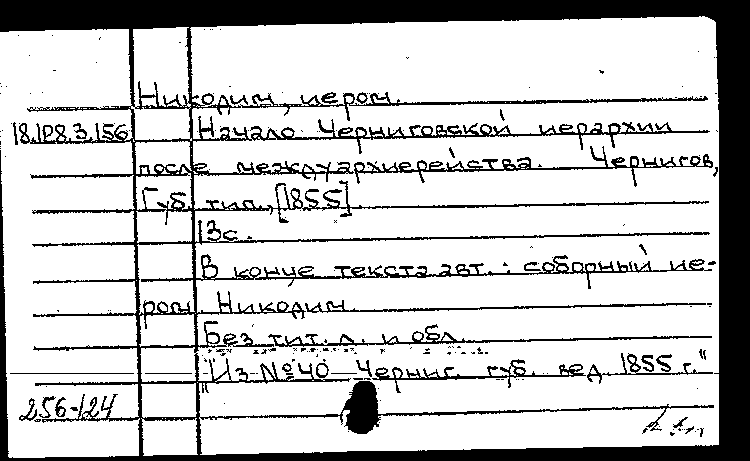 Никодим, иером.
18.128.3.156 Начало Черниговской иерархии
после междуархиерейства. Чернигов,
Губ. тип., [1855].
13с.
В конце текста авт.: соборный ие-
ром. Никодим.
Без тит. л. и обл.
"Из №40 Черниг. губ. вед. 1855 г."
256-124